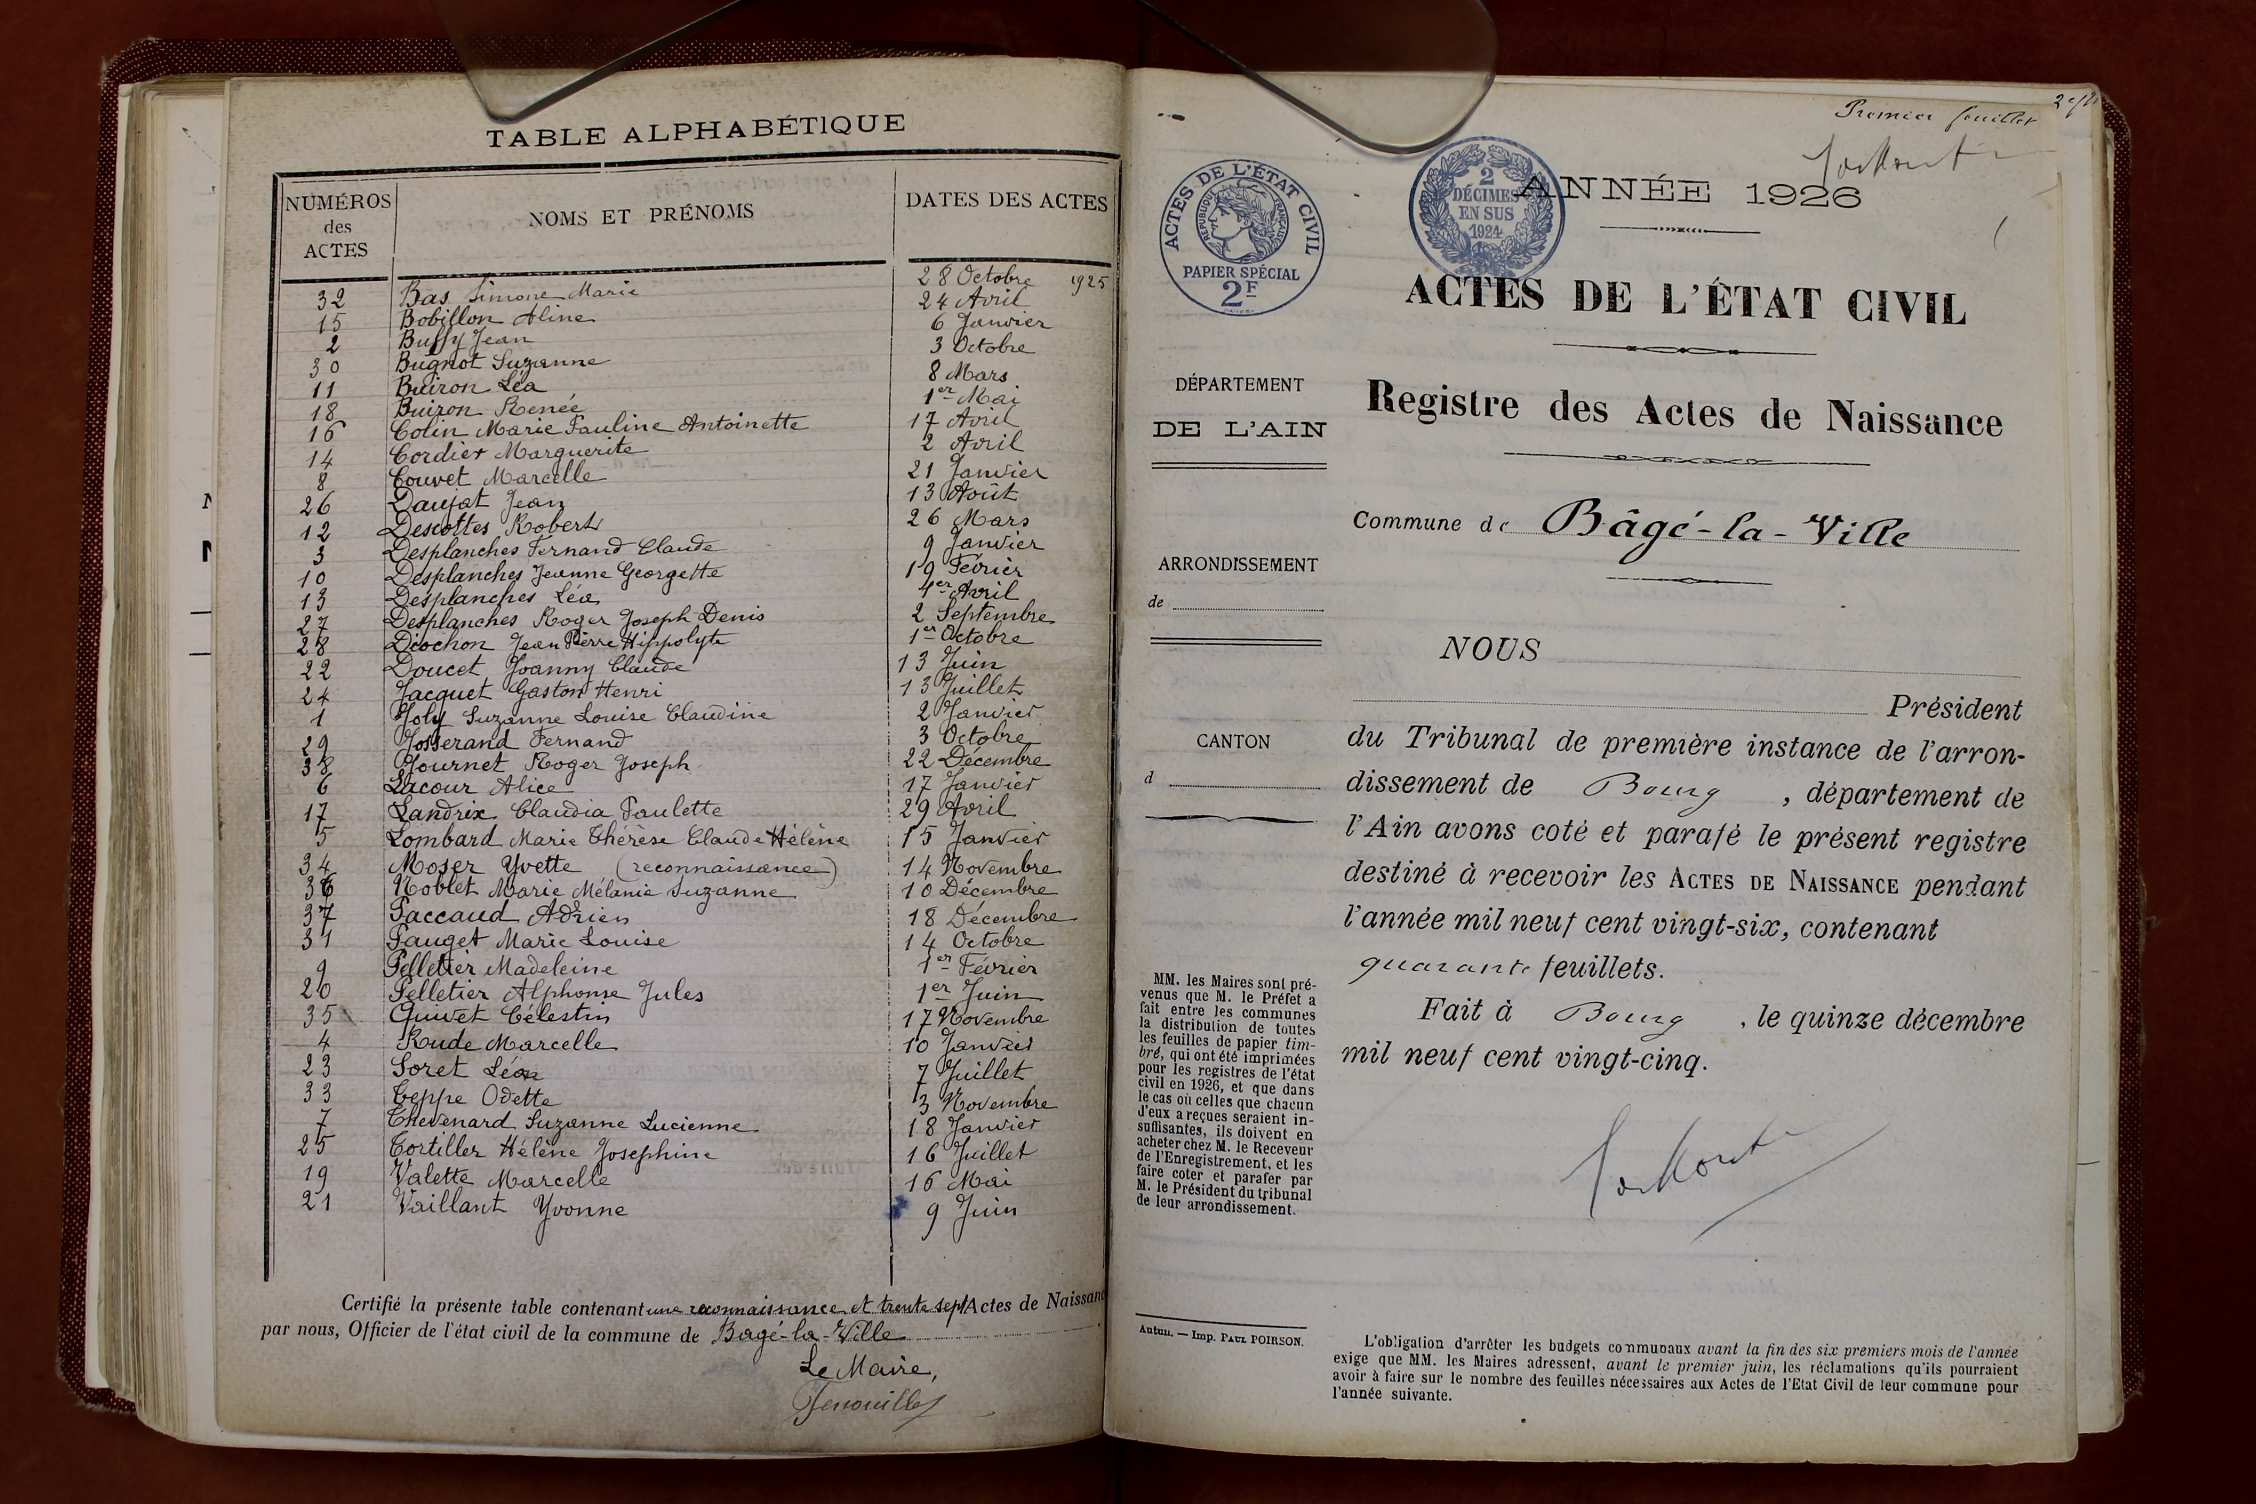 TABLE ALPHABÉTIQUE
NUMÉROS des ACTES NOMS ET PRÉNOMS DATES DES ACTES
32 Bas Simone Marie 28 Octobre 1925
15 Bobillon Aline 24 Avril
2 Buffy Jean 6 Janvier
30 Bugnot Suzanne 3 Octobre
11 Buiron Léa 8 Mars
18 Buiron Renée 1er Mai
16 Colin Marie Pauline Antoinette 17 Avril
14 Cordier Marguerite 2 Avril
8 Couvet Marcelle 21 Janvier
26 Daujat Jean 13 Août
12 Descottes Robert 26 Mars
3 Desplanches Fernand Claude 9 Janvier
10 Desplanches Jeanne Georgette 19 Février
13 Desplanches Léa 1er Avril
27 Desplanches Roger Joseph Denis 2 Septembre
28 Diochon Jean Pierre Hippolyte 1er Octobre
22 Doucet Joanny Claude 13 Juin
24 Jacquet Gaston Henri 13 Juillet
1 Joly Suzanne Louise Claudine 2 Janvier
29 Josserand Fernand 3 Octobre
38 Journet Roger Joseph 22 Décembre
6 Lacour Alice 17 Janvier
17 Landrix Claudia Paulette 29 Avril
5 Lombard Marie Thérèse Claude Hélène 15 Janvier
34 Moser Yvette (reconnaissance) 14 Novembre
36 Noblet Marie Mélanie Suzanne 10 Décembre
37 Paccaud Adrien 18 Décembre
31 Pauget Marie Louise 14 Octobre
9 Pelletier Madeleine 1er Février
20 Pelletier Alphonse Jules 1er Juin
35 Quivet Célestin 17 Novembre
4 Rude Marcelle 10 Janvier
23 Soret Léon 7 Juillet
33 Teppe Odette 3 Novembre
7 Thevenard Suzanne Lucienne 18 Janvier
25 Tortiller Hélène Josephine 16 Juillet
19 Valette Marcelle 16 Mai
21 Vaillant Yvonne 9 Juin
Certifié la présente table contenant une reconnaissance et trente sept Actes de Naissanc
par nous, Officier de l'état civil de la commune de Bagé-la-Ville
Le Maire,
Premier feuillet
ACTES DE L'ÉTAT CIVIL
RÉPUBLIQUE FRANÇAISE
PAPIER SPÉCIAL
2F
2
DÉCIMES
EN SUS
1924
ANNÉE 1926
ACTES DE L'ÉTAT CIVIL
Registre des Actes de Naissance
Commune de Bâgé-la-Ville
DÉPARTEMENT
DE L'AIN
ARRONDISSEMENT
de
CANTON
d
MM. les Maires sont pré-
venus que M. le Préfet a
fait entre les communes
la distribution de toutes
les feuilles de papier tim-
bré, qui ont été imprimées
pour les registres de l'état
civil en 1926, et que dans
le cas où celles que chacun
d'eux a reçues seraient in-
suffisantes, ils doivent en
acheter chez M. le Receveur
de l'Enregistrement, et les
faire coter et parafer par
M. le Président du tribunal
de leur arrondissement.
Autun. — Imp. PAUL POIRSON.
NOUS
Président
du Tribunal de première instance de l'arron-
dissement de Bourg, département de
l'Ain avons coté et parafé le présent registre
destiné à recevoir les ACTES DE NAISSANCE pendant
l'année mil neuf cent vingt-six, contenant
quarante feuillets.
Fait à Bourg, le quinze décembre
mil neuf cent vingt-cinq.
L'obligation d'arrêter les budgets communaux avant la fin des six premiers mois de l'année
exige que MM. les Maires adressent, avant le premier juin, les réclamations qu'ils pourraient
avoir à faire sur le nombre des feuilles nécessaires aux Actes de l'Etat Civil de leur commune pour
l'année suivante.